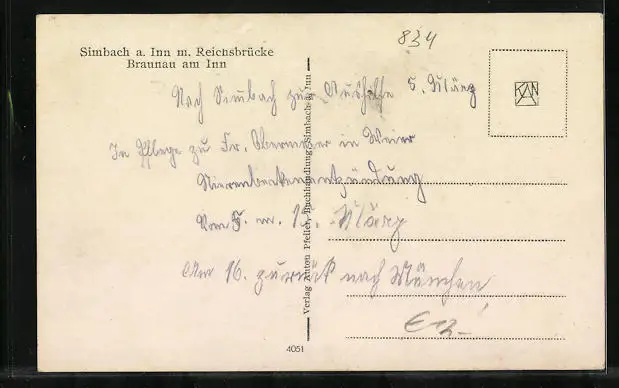 834
Simbach a. Inn m. Reichsbrücke
Braunau am Inn
KAN
Nach Simbach zur Aushilfe 5. März
In Pflege zu Fr. Obermeier in Weier
Nierenbeckenentzündung
vom 5. m. 15. März
Am 16. zurück nach München
Verlag Anton Pfeiler, Buchhandlung, Simbach a. Inn
4051